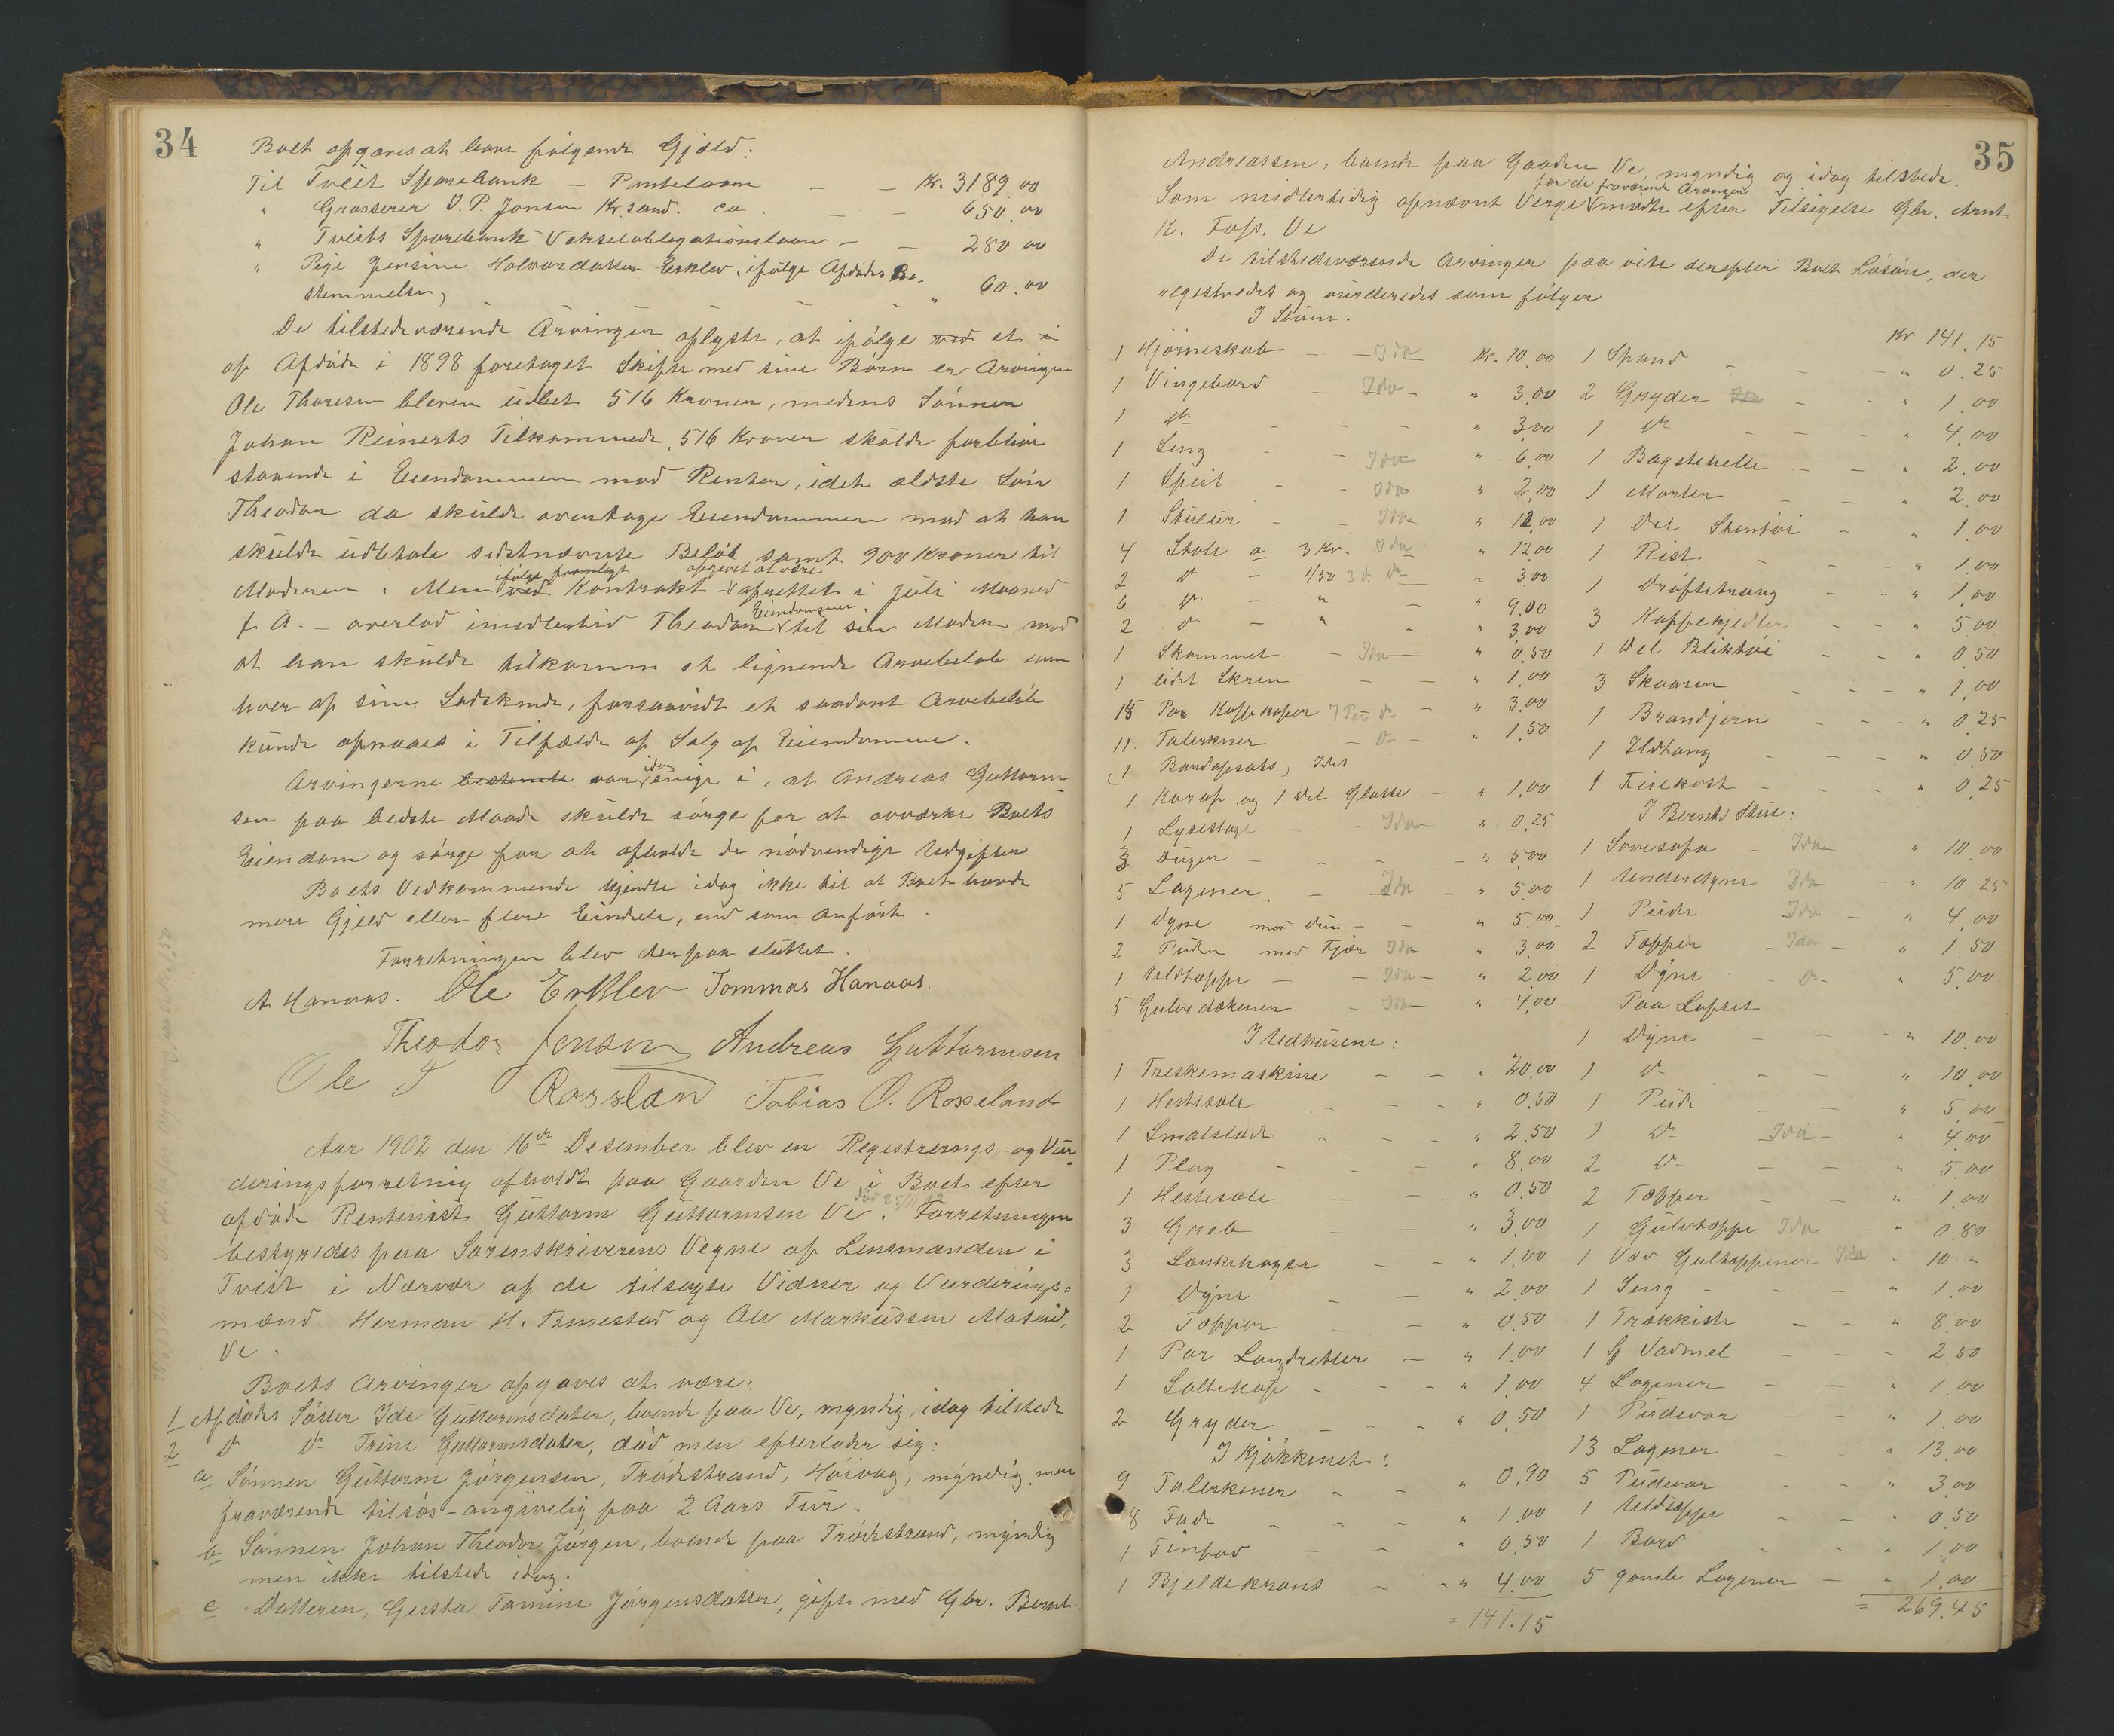 34
Boet opgaves at have følgende Gjæld:
Til Tveit Sparebank – Pantelaan – – Kr. 3189.00
" Grosserer J. P. Jensen Kr.sand. ca. – – 650.00
" Tveits Sparebank Vekselobligationslaan – – 280.00
" Pige Jensine Halvorsdatter Erklev, ifølge Afdødes Be-
stemmelse, " 60.00
De tilstedeværende Arvinger oplyste, at ifølge ved et i
af Afdøde i 1898 foretaget Skifte med sine Børn er Arvingen
Ole Thoresen bleven udbet 516 Kroner, medens Sønnen
Johan Reinerts Tilkommende 516 Kroner skulde forblive
staaende i Eiendommen mod Renter, idet ældste Søn
Theodor da skulde overtage Eiendommen mod at han
skulde udbetale sidstnævnte Beløb samt 900 Kroner til
Moderen. Men ved ifølge fremlagt Kontrakt opgivet at være oprettet i Juli Maaned
f. A. – overlod imidlertid Theodor Eiendommen til sin Moder mod
at han skulde tilkomme et lignende Arvebeløb som
hver af sine Sødskende, forsaavidt et saadant Arvebeløb
kunde opnaaes i Tilfælde af Salg af Eiendomme.
Arvingerne bestemte var idag enige i, at Andreas Guttorm-
sen paa bedste Maade skulde sørge for at avværke Boets
Eiendom og sørge for at afholde de nødvendige Udgifter
Boets Vedkommende kjendte idag ikke til at Boet havde
mere Gjeld eller flere Eiendele, end som anført.
Forretningen blev derpaa sluttet.
A Hanaas. Ole Erklev Tommas Hanaas.
Theodor Jensen Andreas Guttormsen
Ole T Rosslan Tobias O. Rosseland
Aar 1902 den 16de Desember blev en Registrerings- og Vur-
deringsforretning afholdt paa Gaarden Ve i Boet efter
afdøde Rentenist Guttorm Guttormsen Ve. Forretningen
bestyredes paa Sorenskriverens Vegne af Lensmanden i
Tveit i Nærvær af de tilsagte Vidner og Vurderings=
mænd Herman H. Bunestad og Ole Markussen
Ve.
Boets Arvinger opgaves at være:
1 Afdødes Søster Ide Guttormsdatter, boende paa Ve, myndig, idag tilstede
2 do do Trine Guttormsdatter, død men efterlader sig:
a Sønnen Guttorm Jørgensen, Trødestrand, Høivaag, myndig men
fraværende tilsøs – angivelig paa 2 Aars Tur.
b Sønnen Johan Theodor Jørgen, boende paa Trødestrand, myndig
men ikke tilstede idag.
c Datteren, Gusta Tomine Jørgensdatter, gift med Gbr. Bernt
35
Andreassen, boende paa Gaarden Ve, myndig og idag tilstede.
Som midlertidig opnævnt Verge for de fraværende Arvinger mødte efter Tilsigelse Gbr. Arnt
K. Foss. Ve
De tilstedeværende Arvinger paa viste derefter Boets Løsøre, der
registredes og vurderedes som følger
I Stuen.
1 Hjørneskab – Ida – Kr. 10.00
1 Vingebord – Ida – " 3.00
1 do – – – " 3.00
1 Seng – – – " 6.00
1 Speil – – Ida " 2.00
1 Stueur – – Ida " 12.00
4 Stole a 3 Kr. Ida " 12.00
2 do – 1/50 3 do do " 3.00
6 do – " – " 9.00
2 do – " – " 3.00
1 Skammel – Ida – " 0.50
1 lidet Skrin – – " 1.00
18 Par Kaffekopper 7 Par do – " 3.00
11. Talerkner – do – " 1.50
1 Bordopsats, Ida
1 Karaf og 1 Del Glasse – " 1.00
1 Lysestage – Ida – " 0.25
3 Duger – – – " 5.00
5 Lagener. – Ida – " 5.00
1 Dyne med Dun – – " 5.00
2 Puder med Fjær Ida " 3.00
1 Uldtæppe – Ida – " 2.00
5 Gulvedækener – Ida – " 4.00
I Udhusene:
1 Treskemaskine – – " 20.00
1 Hestesele – – – " 0.50
1 Smalslæde – – – " 2.50
1 Plog – – – " 8.00
1 Hestesele – – " 0.50
3 Greb – – " 3.00
3 – – " 1.00
1 Dyne – – " 2.00
2 Tæpper – – " 0.50
1 Par – " 1.00
1 Saltekop – – – " 1.00
2 Gryder – – " 0.50
I Kjøkkenet:
9 Talerkener – – " 0.90
8 Fade – – – " 1.00
1 Tinfad – – " 0.50
1 Bjeldekrans – – " 4.00
= 141.15
Kr 141.15
1 Spand – – – " 0.25
2 Gryder Ida – – " 1.00
1 do – – – " 4.00
1 Bagstehelle – – " 2.00
1 Morter – – " 2.00
1 Del Stentøi – " 1.00
1 Rist – – " 1.00
1 Drøftetraug – – " 1.00
3 Kaffekjedler – – " 5.00
1 Del Bliktøi – – " 0.50
3 Skaarer – – – " 1.00
1 Brandjern – – – " 0.25
1 Ildtang – – – " 0.50
1 Feiekost – – – " 0.25
I Bernts Stue:
1 Sovesofa – Ida " 10.00
1 Underdyne Ida – " 10.25
1 Pude Ida – " 4.00
2 Tæpper – Ida – " 1.50
1 Dyne – do – " 5.00
Paa Loftet
1 Dyne – – – " 10.00
1 do – – " 10.00
1 Pude – – " 5.00
1 do Ida – " 4.00
2 do – – – " 5.00
2 Tæpper – – " 1.00
1 Gulvtæppe Ida – " 0.80
1 Væv Gultæppener Ida " 10 "
1 Seng – – – " 1.00
1 Trækkiste – – " 8.00
1 Vadmel – – – 2.50
4 Lagener – – " 1.00
1 Pudevar – – " 1.00
13 Lagener – " 13.00
5 Pudevar – – " 3.00
1 Uldtæppe – – " 0.50
1 Bord – – " 1.00
5 gamle Lagener – " 1.00
= 269.45